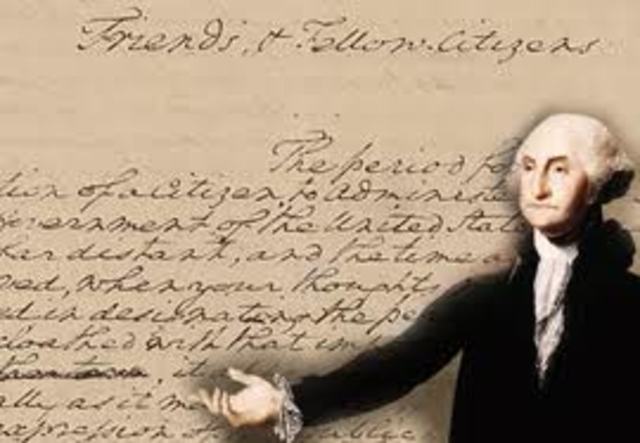 Friends, & Fellow-Citizens
The period fo
tion of a Citizen, to administe
overnment of the United State
far distant, and the time a
ved, when your thoughts
ed in designating the pe
cloathed with that imp
, it
ally as it m
expression of public